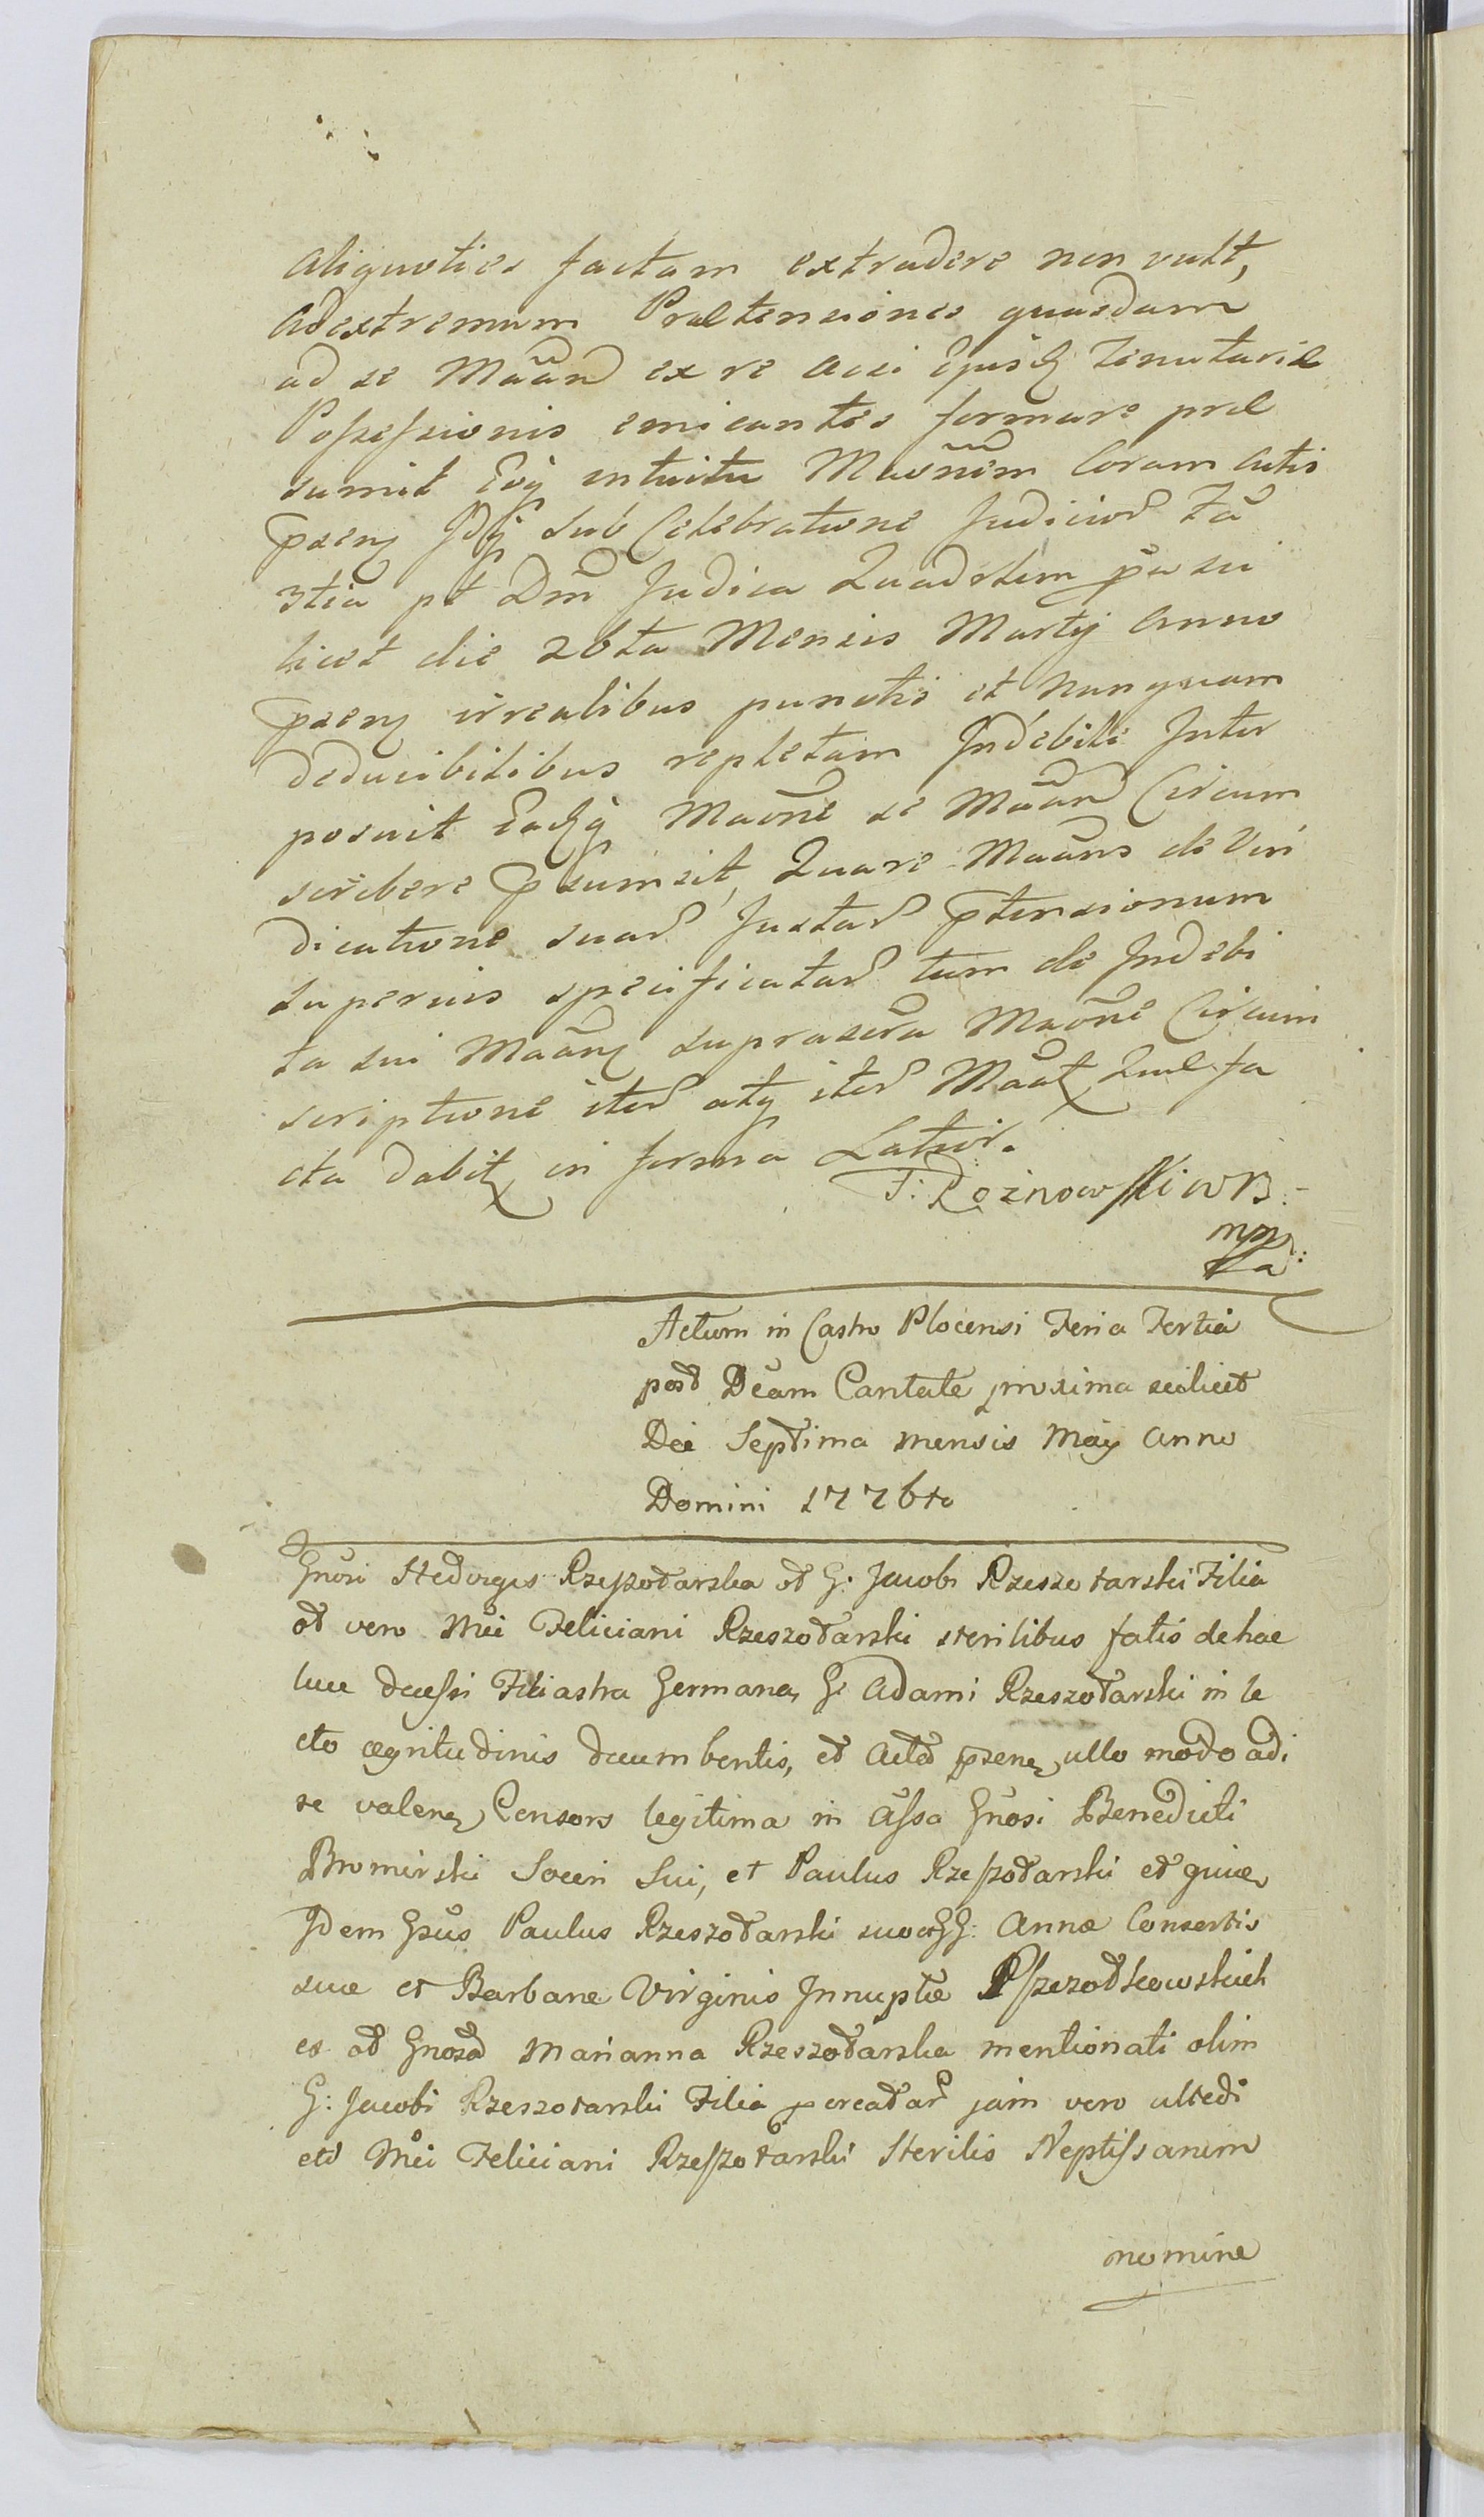 aliquoties factam extradere non vult,
ad extremum Praetensiones quasdam
ad se Maan͠d ex re acsi Ejusq Tenutariae
Possessionis emicantes formare prae
sumit Eoq intuitu Maõnem Coram Actis
psen Idq sub Celebratione Judicior Fa
3tia pt Dm̃ Judica Quadrlem pa sci
licet die 26ta Mensis Martij Anno
psen irrealibus punctis et nunquam
deducibilibus repletam Indebite Inter
posuit Eadq Maõne se Maan͠d Circum
scribere psumsit, Quare Maãns de Vin
dicatione suar Justar ptensionum
superius specificatar tum de Indebi
ta sui Maãn suprascra Maõne Circum
scriptione iter atq iter Maat Quae fa
cta dabit in forma Latior.
F: Rożnowski WB.
mp
Actum in Castro Plocensi Feria Tertia
post Dcam Cantate proxima scilicet
Die Septima mensis Maij Anno
Domini 1776to
Gnosi Hedvigis Rzeszotarska ol G: Jacobi Rzeszotarski Filia
ol vero Mci Feliciani Rzeszotarski sterilibus fatis de hac
luce decessi Filiastra Germana, G: Adami Rzeszotarski in le
cto aegritudinis decumbentis, et Acta psen ullo modo adi
re valen Consors legitima in Assa Gnosi Benedicti
Bromirski Soceri Sui, et Paulus Rzeszotarski et quidem
Idem Gsus Paulus Rzeszotarski suo et GG: Annae Consortis
suae et Barbarae Virginis Innuptae Rszezotkowskich
ex ol Gnosa Marianna Rzeszotarska mentionati olim
G: Jacobi Rzeszotarski Filia pcreatar jam vero
Mci Feliciani Rzeszotarski Sterilis Neptissarum
nomine